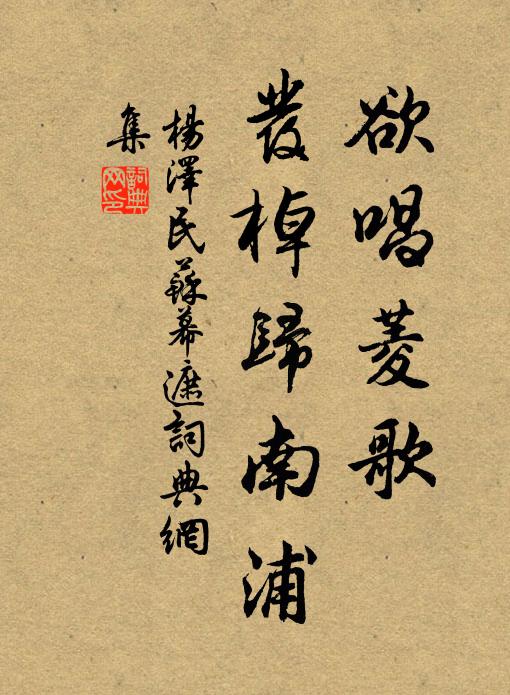 欲唱菱歌
發棹歸南浦
楊澤民蘇幕遮詞典網
集
詞典網印